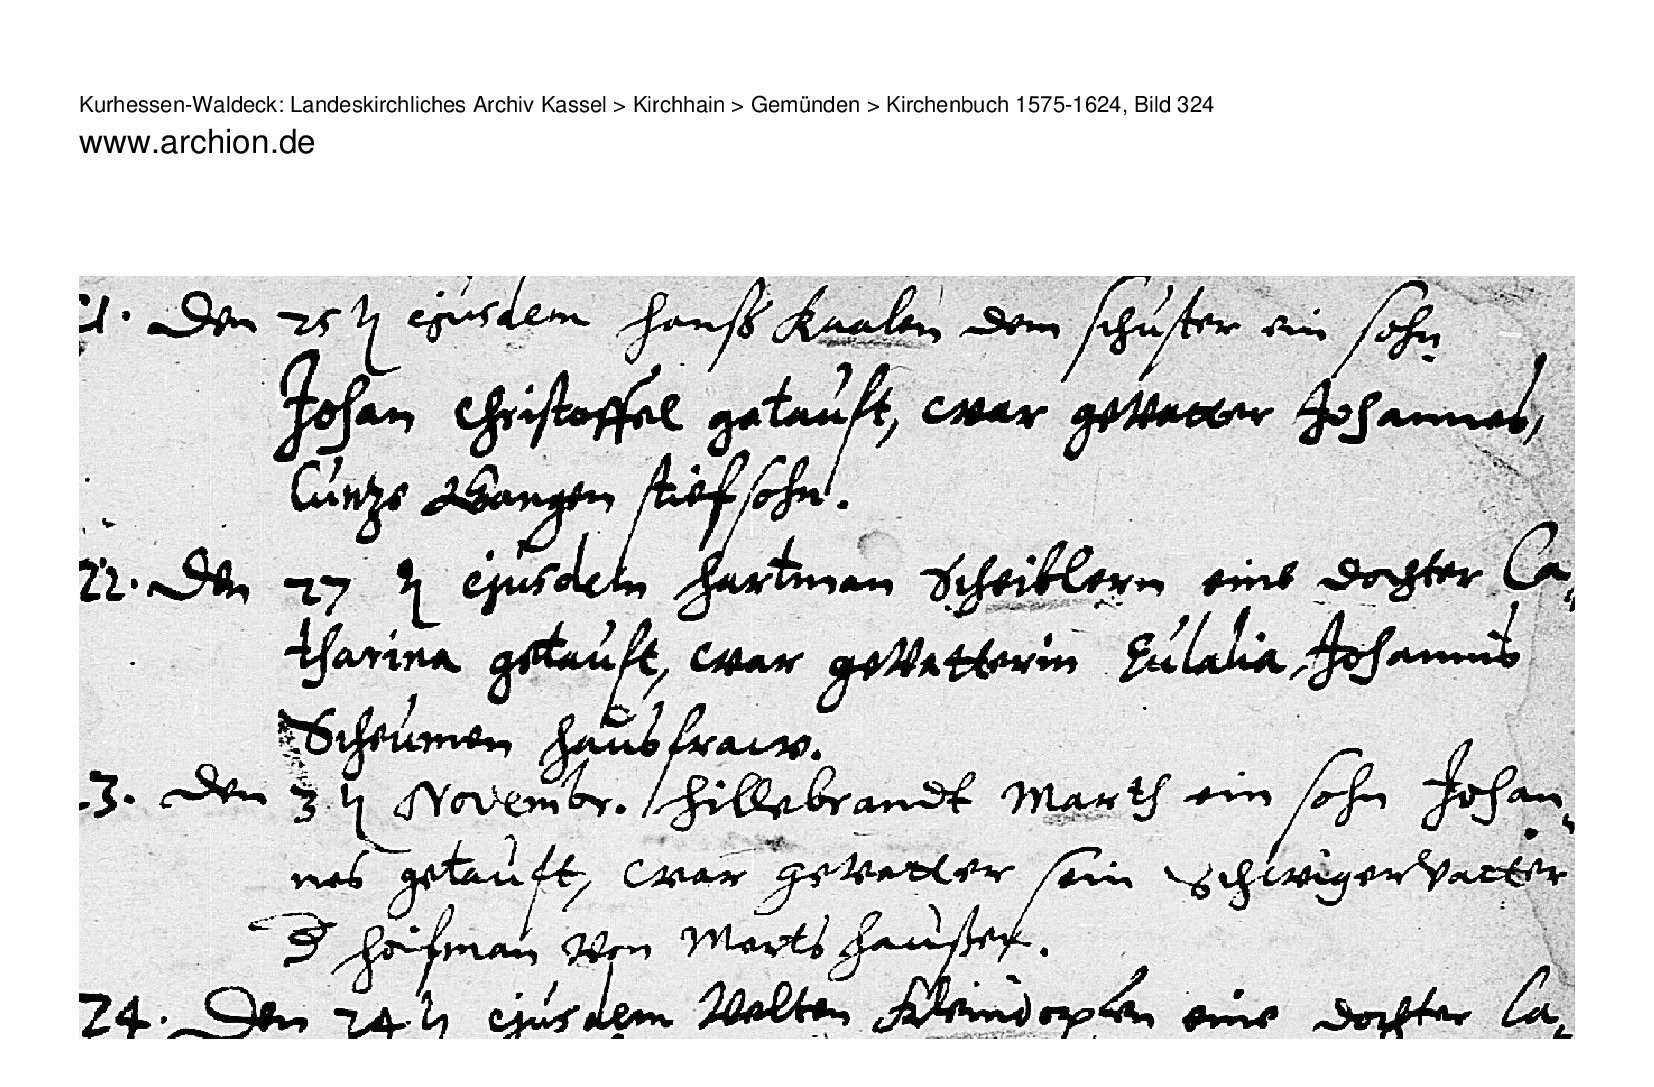 Kurhessen-Waldeck: Landeskirchliches Archiv Kassel > Kirchhain > Gemünden > Kirchenbuch 1575-1624, Bild 324
www.archion.de
21. Den 25 ejusdem Hanß Kaalen dem schuster ein sohn
Johan Christoffel getauft, war gevatter Johannes,
Cuntze Wangen stiefsohn.
22. Den 27 ejusdem Hartman Scheiblern eine dochter Ca,
tharina getauft, war gevatterin Eulalia, Johannis
Scheumen hausfraw.
23. Den 3 Novembr. Hillebrandt Marth ein sohn Johan,
nes getauft, war gevatter sein Schwigervatter
Hoifman von Martshaußen.
24. Den 24 ejusdem Velten eine dochter Ca,